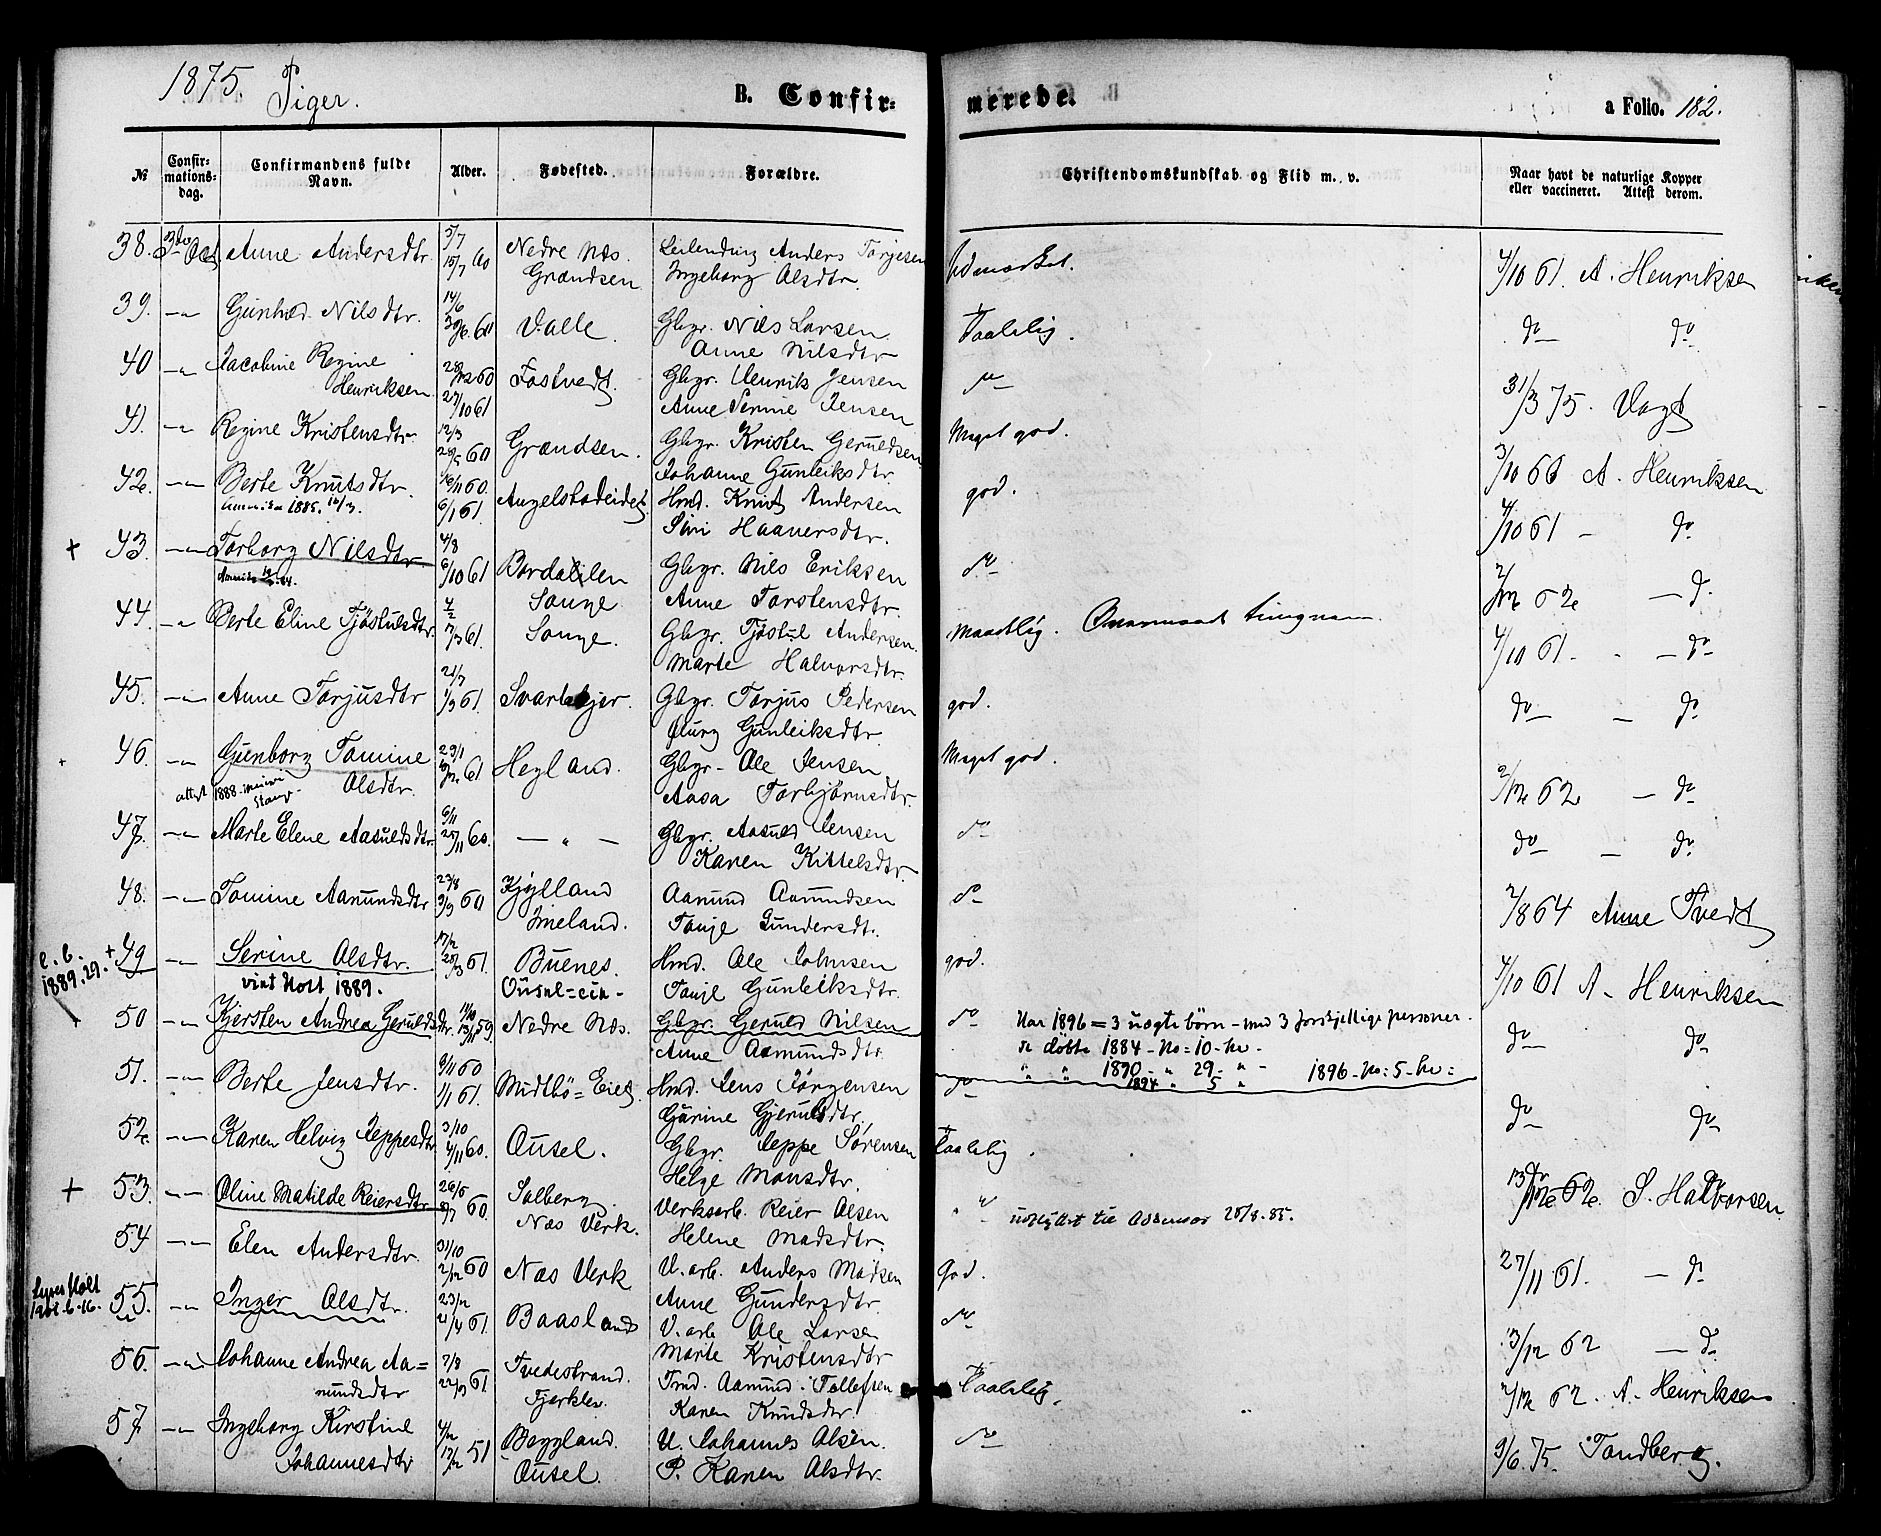 1875. Piger.
B. Confir=
merede.
a Folio. 182.
№
Confir=
mations=
dag.
Confirmandens fulde
Navn.
Alder.
Fødested.
Forældre.
Christendomskundskab og Flid m. v.
Naar havt de naturlige Kopper
eller vaccineret. Attest derom.
38. 3die Oct Anne Andersdtr. 5/7 15/7 60 Nedre Næs. Grændsen Leilending Anders Torjesen
Ingeborg Olsdtr. Udmærket. 4/10 61 A. Henriksen
39. — Gunhild Nilsdtr. 14/6 60 Valle. Gbgr. Nils Larsen
Anne Nilsdtr Taalelig. do do
40 — Jacobine Regine
Henriksen. 60 27/10 61 Fostvedt. Gbgr. Henrik Jensen
Anne Serine Jensen do 31/3 75. Vogt
41. — Regine Kristensdtr. 12/3 60 Grændsen. Gbgr. Kristen Geruldsen
Johanne Gunleiksdtr Meget god. 3/10 66 A. Henriksen
42. — Berte Knutsdtr. 16/11 60. 6/1 61. Angelstadeidet Hmd. Knut Andersen
1885. 16/3.
Siri Haaversdtr. god. 4/10 61 — do
+ 43. — Torborg Nilsdtr 4/8 6/10 61 Bordalilen
Songe Gbgr. Nils Eriksen
Anne Torstensdtr do 62 — do
44. — Berte Eline Tjøstulsdtr. 61. Songe. Gbgr. Tjøstul Andersen.
Marte Halvorsdtr. Maadelig. Overmaade tungnem. 4/10 61. — do
45. — Anne Torjusdtr 21/7 1/9 61. Gbgr. Torjus Pedersen
Gunleiksdtr god. do — do
46. — Gunborg Tomine
Olsdtr. 29/1 61 Hegland. Gbgr. Ole Jensen
attest 1888.
Aasa Torbjörnsdtr. Meget god. 62 — do
47. — Marte Elene Aasuldsdtr. 9/11 25/11 60. — " — Gbgr. Aasuld Jensen
Karen Kittelsdtr. do do — do
48. — Tomine Aanundsdtr 23/8 60 Kjylland
Imeland. Aanund Aanundsen
Tonje Gundersdtr. do 2/8 64 Anne Tvedt
e. b.
1889. 29. + 49 — Serine Olsdtr. 17/2 61. Buenes. Hmd. Ole Johnsen
viet Holt 1889.
Ousel=eie- Tonje Gunleiksdtr. god. 4/10 61 A. Henriksen
50 — Kjersten Andrea Gerulds
dtr. 13/11 59. Nedre Næs. Gbgr. Geruld Nilsen
Anne Aamundsdtr. do Har 1896 = 3 uægte börn - med 3 forskjellige personer.
de døbte 1884 - No: 10 - kv. do do
" " 1890 - " 29 - " -
1894 " 5 " 1896 - No: 5 - kv:
51. — Berte Jensdtr. 9/11 60 1/1 61. Midtbö=Eiet. Hmd. Jens Jörgensen
Gurine Gjeruldsdtr. do do do
52. — Karen Helvig Jeppesdtr 3/10 4/11 60. Ousel. Gbgr. Jeppe Sørensen
Helge Monsdtr. Taalelig. do
+ 53. — Oline Matilde Reiersdtr 26/5 60. Solberg
Næs Verk. Verksarb. Reier Olsen
Helene Madsdtr. do udflyttet til 25/8-85. 62. S. Halvorsen
54 — Elen Andersdtr. 31/10 2/12 60 Næs Verk V. arb. Anders Madsen
Anne Gundersdtr. God. 27/11 61. — do
55. — Inger Olsdtr. 23/2 21/4 61. Baasland V. arb. Ole Larsen
Marte Kristensdtr do 3/12 62 — do
56. — Johanne Andrea Aa=
nundsdtr 7/8 22/9 61. Tvedestrand.
Tjerklev Tmd. Aamund Tollefsen
Karen Knudsdtr. Taalelig. 62. A. Henriksen
57 — Ingeborg Kirstine
Johannesdtr 51 Beggland.
Ousel. U. Johannes Olsen.
P. Karen Olsdtr. do 9/6. 75. Tandberg.